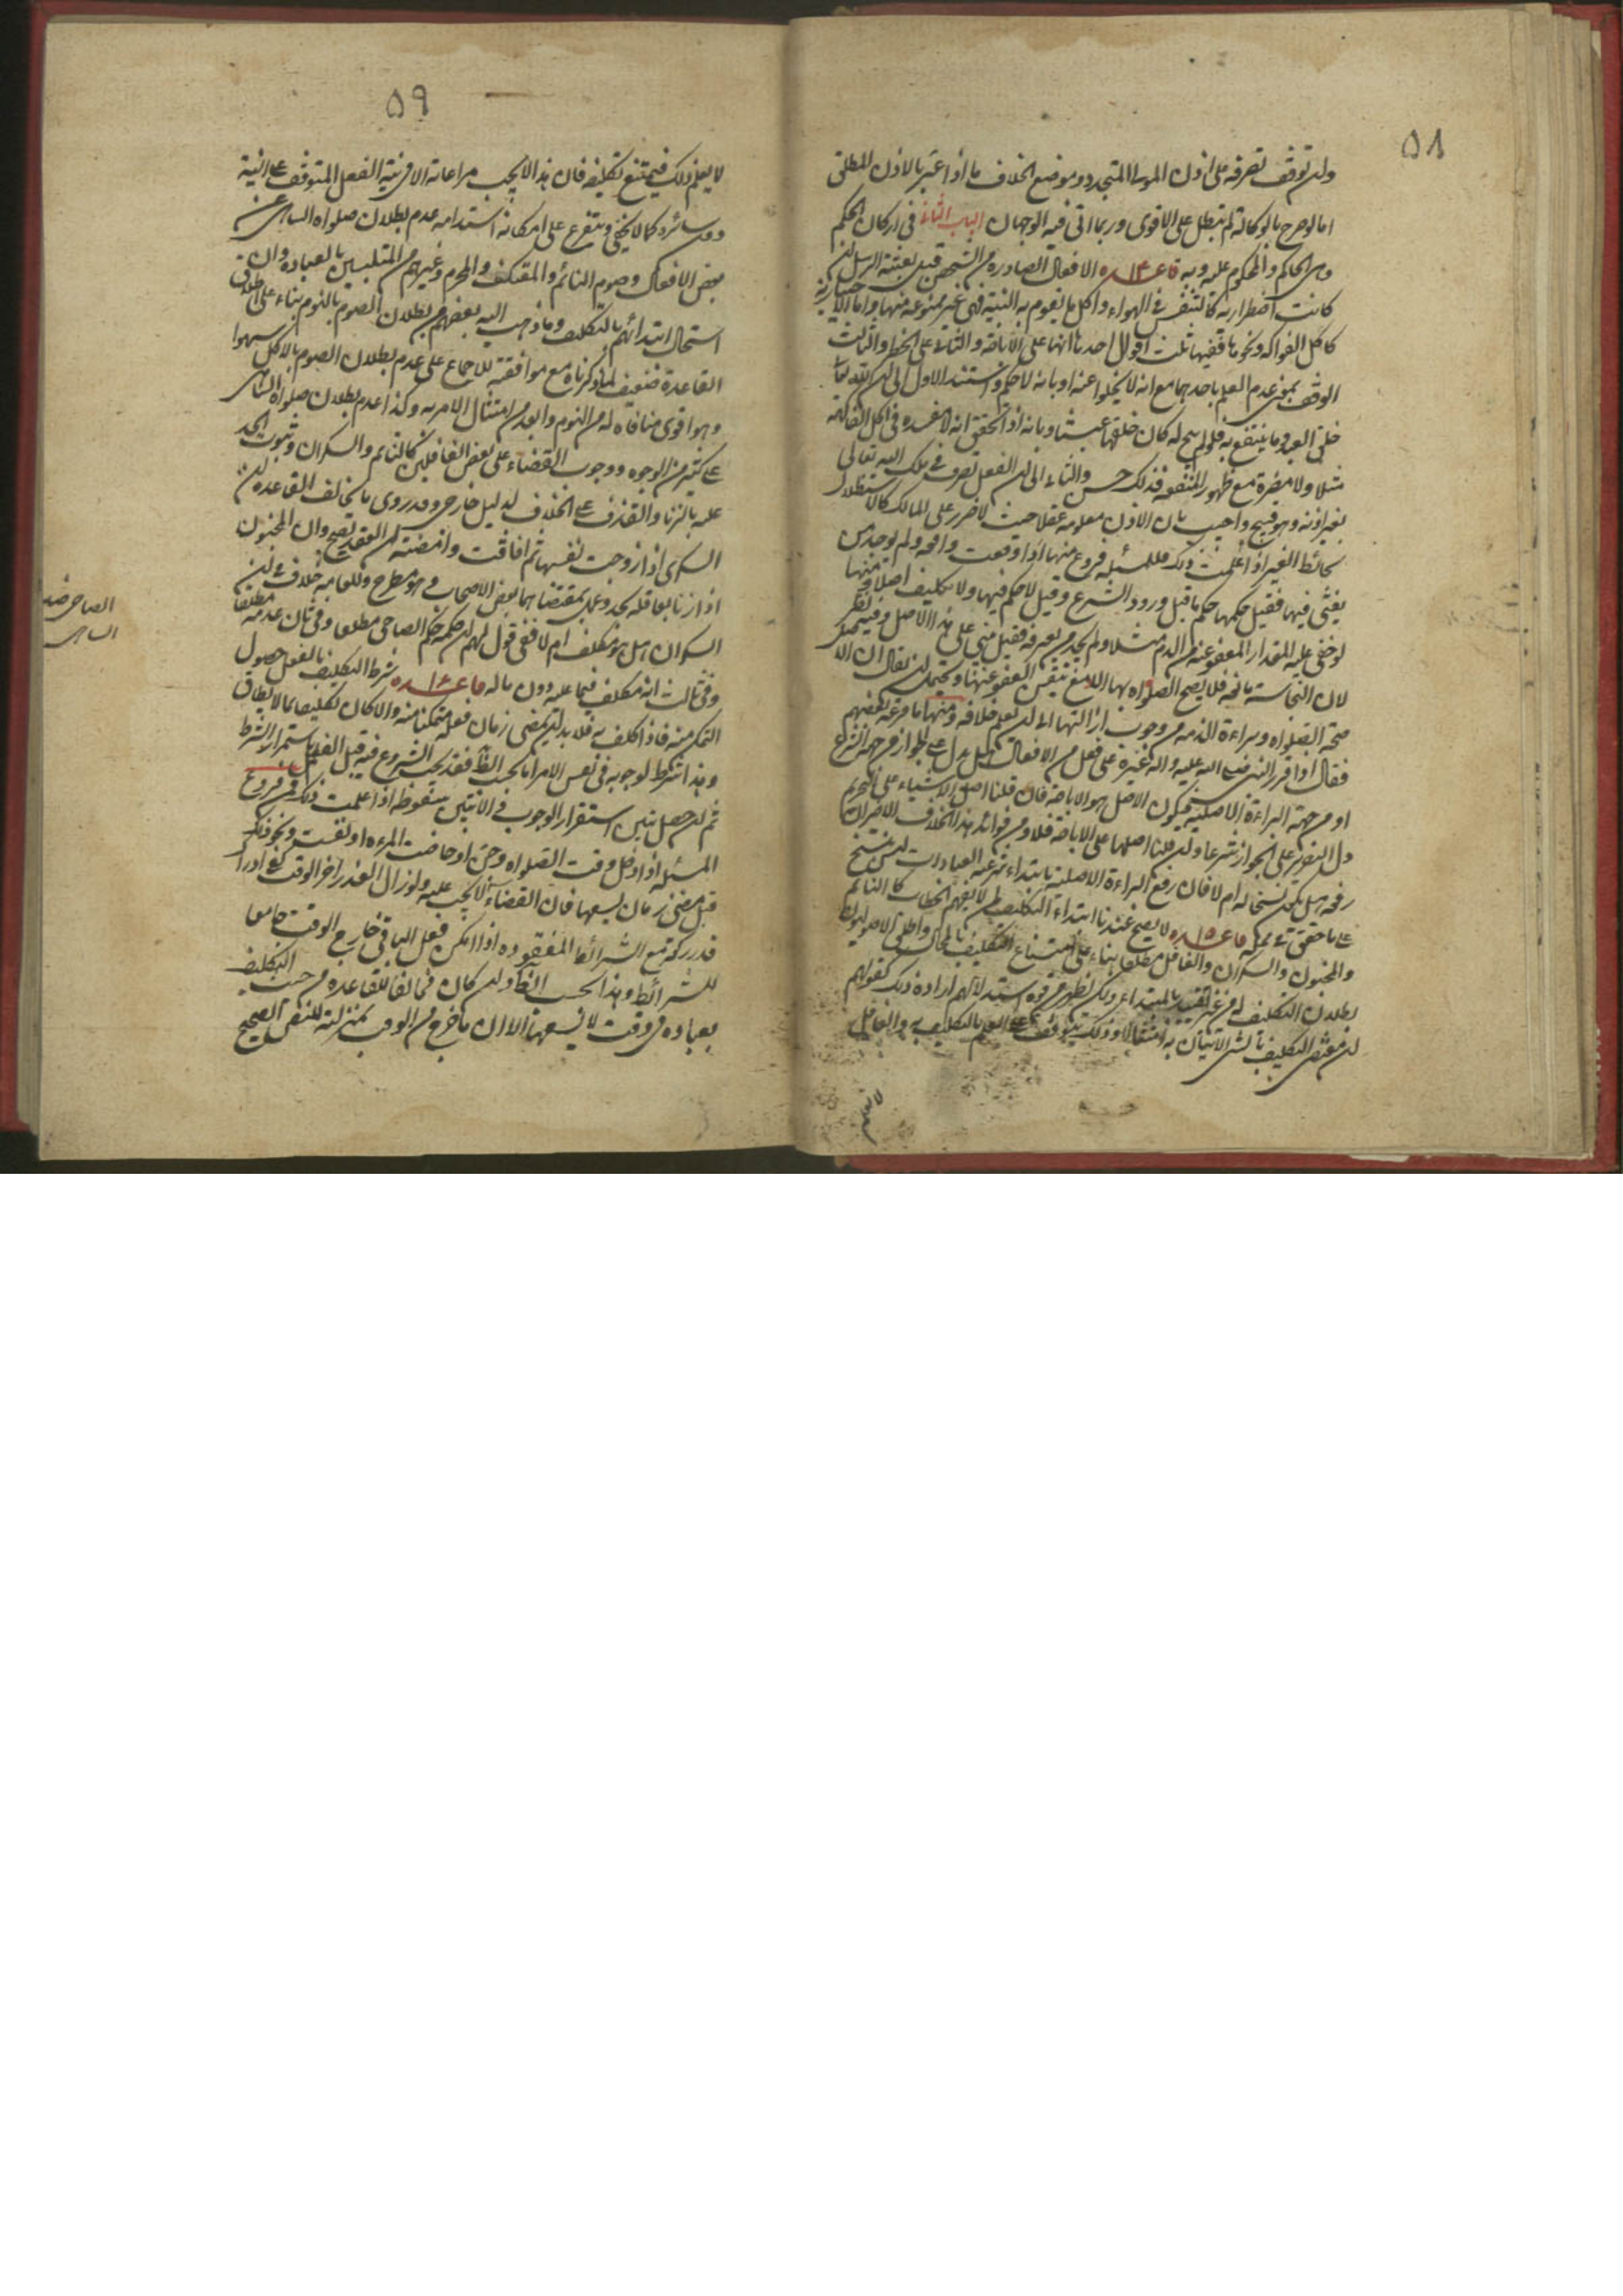 ٥٨
وان توقف تصرفه على اذن المولى المتجدد وموضع الخلاف ما اذا عبر بالاذن المطلق
اما لو صرح بالوكالة لم تبطل على الاقوى وربما اتى فيه الوجهان الباب الثانى فى اركان الحكم
وهى الحاكم والمحكوم عليه وبه قاعده الافعال الصادرة من الشخص قبل بعثة الرسل ان
كانت اضطرارية كالتنفس فى الهواء واكل ما يقوم به البنية فهى غير ممنوعة منها واما الاختيارية
كاكل الفواكه ونحوها ففيها ثلث اقوال احدها انها على الاباحة والثانى على الحظر والثالث
الوقف بمعنى عدم العلم باحدهما مع انه لا يخلوا عنه او بانه لا حكم واستند الاول الى ان الله تعالى
خلق العبد وما ينتفع به فلو لم يبح له كان خلقها عبثا وبانه اذ التحقق انه لا مفسدة فى اكل الفاكهة
مثلا ولا مضرة مع ظهور المنفعة فذلك حسن والثانى الى ان الفعل تصرف فى ملك الله تعالى
بغير اذنه وهو قبيح واجيب بان الاذن معلومة عقلا حيث لا ضرر على المالك كالاستظلال
بحائط الغير اذا علمت ذلك فللمسئله فروع منها اذا وقعت واقعة ولم يوجد من
يفتى فيها فقيل حكمها حكم ما قبل ورود الشرع وقيل لا حكم فيها ولا تكليف اصلا ومنها
لو خفى عليه المقدار المعفو عنه من الدم مثلا ولم يجد من يعرفه فقيل مبنى على هذا الاصل وفيه نظر
لان النجاسة مانعة فلا يصح الصلوة بها الا مع تيقن العفو عنها ويحتمل ان يقال ان الا
صحة الصلوة وبراءة الذمه من وجوب ازالتها الى ان يعلم خلافه ومنها ما فرعه بعضهم
فقال اذا قرر النبى صلى الله عليه واله غيره على فعل من الافعال هل يدل على الجواز من جهة الشرع
او من جهة البراءة الاصلية فيكون الاصل هو الاباحة فان قلنا اصل الاشياء على التحريم
دل التقرير على الجواز شرعا وان قلنا اصلها على الاباحة فلا ومن فوائد هذا الخلاف
رفعه هل يكون نسخا له ام لا فان رفع البراءة الاصلية بابتداء شرعية العبادات ليس بنسخ
على ما حقق فى محله قاعده لا يصح عندنا ابتداء التكليف لمن لا يفهم الخطاب كالنائم
والمجنون والسكران والغافل مطلقا بناء على امتناع التكليف بالمحال واطلق الاصوليون
بطلان التكليف له من غير تقييد بالمبتداء ولكن يظهر من قوة استدلالهم ارادة ذلك كقولهم
ان مقتضى التكليف بالشئ الاتيان به امتثالا وذلك يتوقف على العلم بالتكليف به والغافل
لا يعلم
٥٩
لا يعلم ذلك فيمتنع تكليفه فان هذا لا يجب مراعاته الا فى نية الفعل المتوقف على النية
دون سائره كما لا يخفى ويتفرع على امكانه استدامه عدم بطلان صلوة الساهى عن
بعض الافعال وصوم النائم والمعتكف والمحرم وغيرهم من المتلبسين بالعبادة وان
استحال ابتدائهم بالتكليف وما ذهب اليه بعضهم من بطلان الصوم بالنوم بناء على اطلاق
القاعدة ضعيف لما ذكرناه مع موافقته للاجماع على عدم بطلان الصوم بالاكل سهوا
وهو اقوى منافاة له من النوم وابعد من امتثال الامر به وكذا عدم بطلان صلوة الساهى
على كثير من الوجوه ووجوب القضاء على بعض الغافلين كالنائم والسكران وثبوت الحد
عليه بالزنا والقذف على الخلاف لدليل خارجى وقد روى ما يخالف القاعدة من ان
السكرى اذا زوجت نفسها ثم افاقت وامضته ان العقد يصح وان المجنون
اذا زنا بعاقله يحد وعمل بمقتضاهما بعض الاصحاب وهو مطرح وللعامة خلاف فى ان
السكران هل هو مكلف ام لا ففى قول لهم ان حكمه حكم الصاحى مطلقا وفى ثان عدمه مطلقا
وفى ثالث انه مكلف فيما عليه دون ماله قاعده شرط التكليف بالفعل حصول
التمكن منه فاذا كلف به فلا بد ان يمضى زمان فعله متمكنا منه والا كان تكليفا بما لا يطاق
وهذا شرط لوجوبه فى نفس الامر اما بحسب الظاهر فقد يجب الشروع فيه قبل العلم باستمرار الشرط
ثم ان حصل تبين استقرار الوجوب والا تبين سقوطه اذا علمت ذلك فمن فروع
المسئله اذا دخل وقت الصلوة وجن او حاضت المرءه او نفست ونحو ذلك
قبل مضى زمان يسعها فان القضاء لا يجب عليه ولو زال العذر اخر الوقت كفى ادراك
قدر ركعة مع الشرائط المفقوده اذا امكن فعل الباقى خارج الوقت جامعا
للشرائط وهذا بحسب الظاهر وان كان مخالفا للقاعدة من حيث التكليف
بعبادة فى وقت لا يسعها الا ان ما خرج من الوقت بمنزلته للنص الصحيح
الصاحى ضد
الساهى